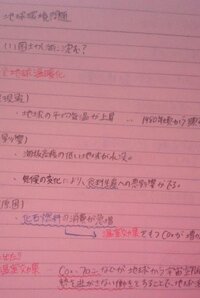 地球環境問題
(1)国土が水に沈む?
地球温暖化
現実)
・地球の平均気温が上昇 … 1980年頃から
影響)
・海抜高度の低い地域が水没。
・気候の変化により、食料生産への悪影響が出る。
原因)
・化石燃料の消費が急増
温室効果をもつCO₂が増
温室効果 … CO₂・フロンなどが地球から宇宙
熱を逃がさない働きをすることで、地